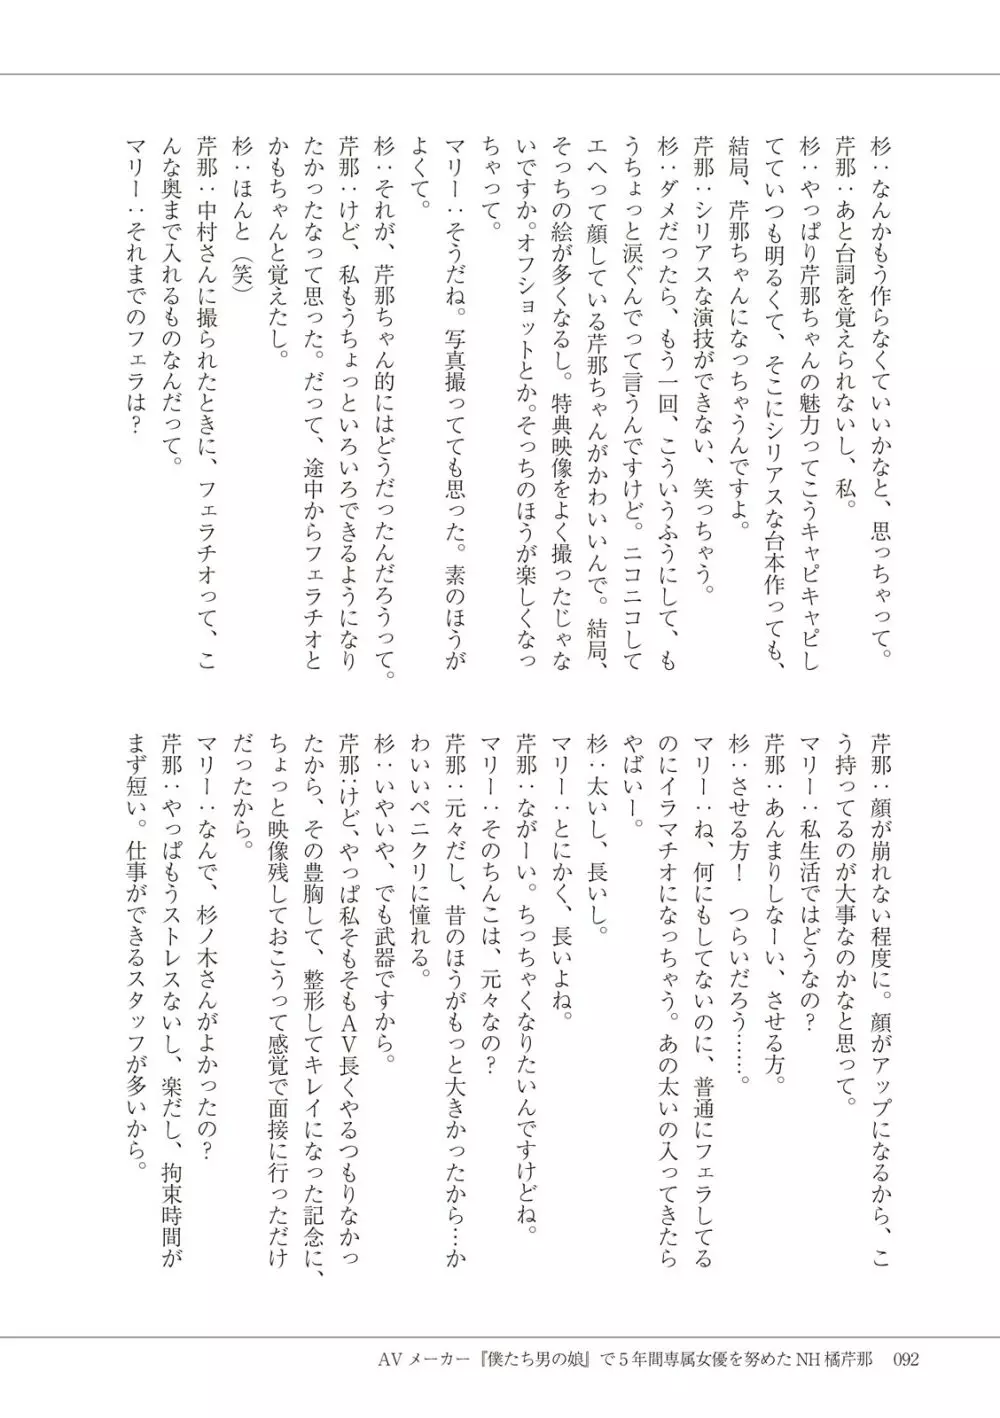 杉：なんかもう作らなくていいかなと、思っちゃって。
芹那：あと台詞を覚えられないし、私。
杉：やっぱり芹那ちゃんの魅力ってこうキャピキャピし
てていつも明るくて、そこにシリアスな台本作っても、
結局、芹那ちゃんになっちゃうんですよ。
芹那：シリアスな演技ができない、笑っちゃう。
杉：ダメだったら、もう一回、こういうふうにして、も
うちょっと涙ぐんでって言うんですけど。ニコニコして
エヘって顔している芹那ちゃんがかわいいんで。結局、
そっちの絵が多くなるし。特典映像をよく撮ったじゃな
いですか。オフショットとか。そっちのほうが楽しくなっ
ちゃって。
マリー：そうだね。写真撮ってても思った。素のほうが
よくて。
杉：それが、芹那ちゃん的にはどうだったんだろうって。
芹那：けど、私もうちょっといろいろできるようになり
たかったなって思った。だって、途中からフェラチオと
かもちゃんと覚えたし。
杉：ほんと（笑）
芹那：中村さんに撮られたときに、フェラチオって、こ
んな奥まで入れるものなんだって。
マリー：それまでのフェラは？
芹那：顔が崩れない程度に。顔がアップになるから、こ
う持ってるのが大事なのかなと思って。
マリー：私生活ではどうなの？
芹那：あんまりしなーい、させる方。
杉：させる方！　つらいだろう……。
マリー：ね、何にもしてないのに、普通にフェラしてる
のにイラマチオになっちゃう。あの太いの入ってきたら
やばいー。
杉：太いし、長いし。
マリー：とにかく、長いよね。
芹那：ながーい。ちっちゃくなりたいんですけどね。
マリー：そのちんこは、元々なの？
芹那：元々だし、昔のほうがもっと大きかったから…か
わいいペニクリに憧れる。
杉：いやいや、でも武器ですから。
芹那：けど、やっぱ私そもそもＡＶ長くやるつもりなかっ
たから、その豊胸して、整形してキレイになった記念に、
ちょっと映像残しておこうって感覚で面接に行っただけ
だったから。
マリー：なんで、杉ノ木さんがよかったの？
芹那：やっぱもうストレスないし、楽だし、拘束時間が
まず短い。仕事ができるスタッフが多いから。
AV メーカー『僕たち男の娘』で 5 年間専属女優を努めた NH 橘芹那　092